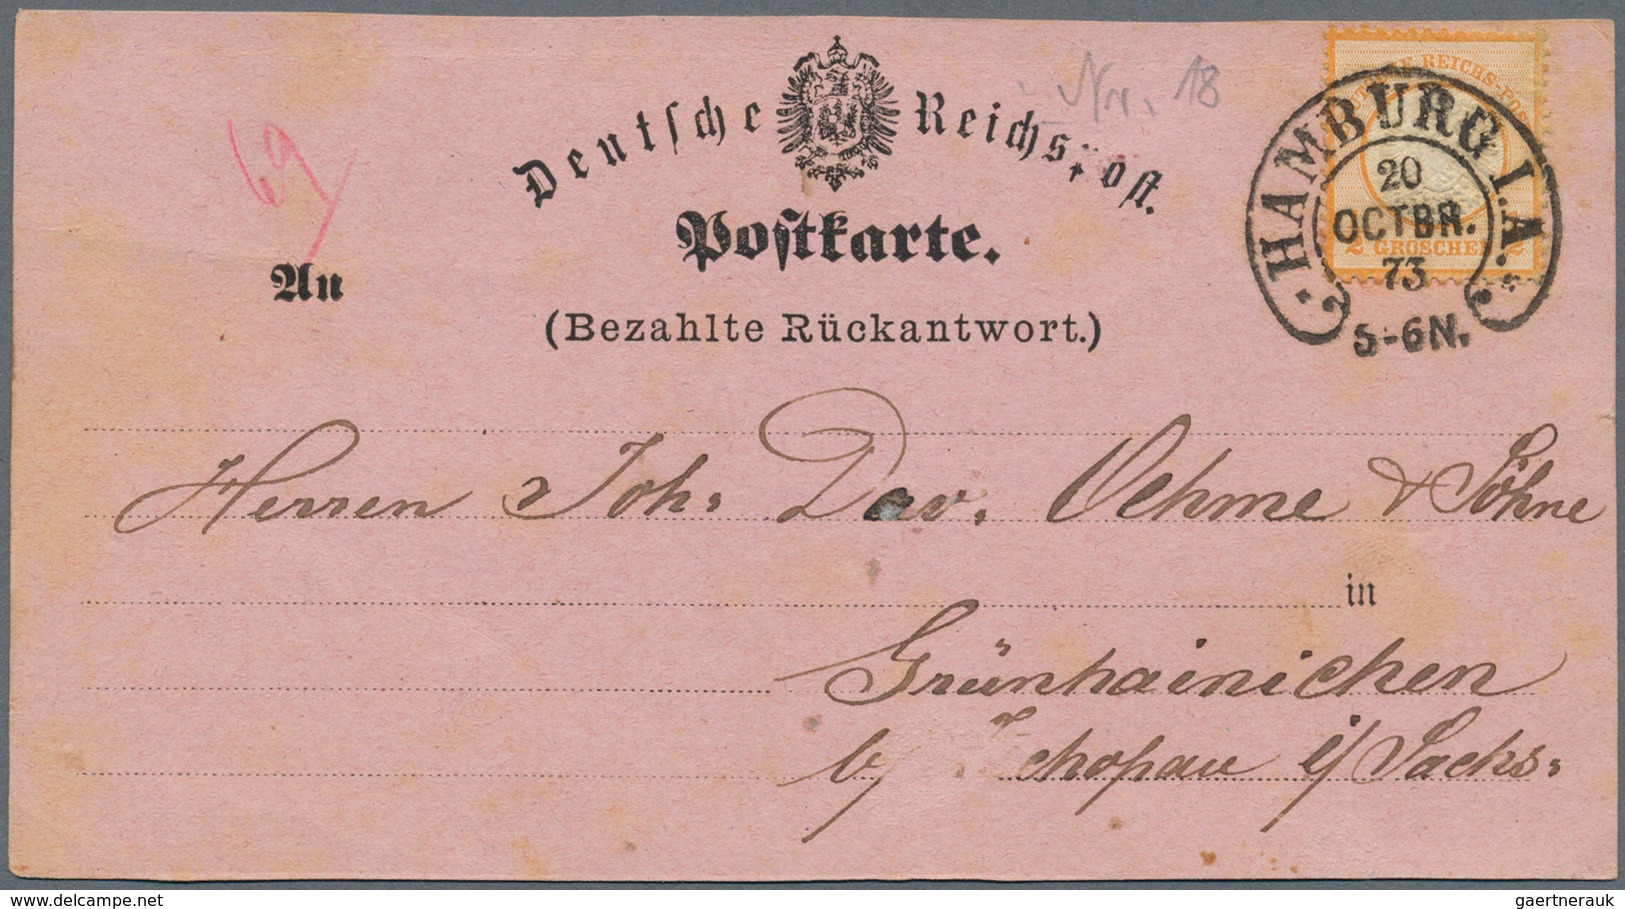 Deutsche Reichspost.
Postkarte.
(Bezahlte Rückantwort.)
Nr. 18
69
An
DEUTSCHE REICHS-POST
1/2 GROSCHEN 1/2
HAMBURG I.A.
20
OCTBR.
73
5-6N.
Herren Joh. Dav. Oehme & Söhne
in
Grünhainichen
b/ Zschopau i/ Sachs.
delcampe.net
gaertnerauk